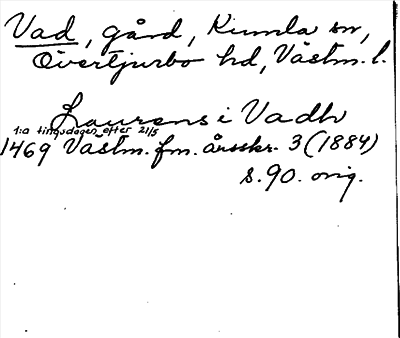 Vad, gård, Kumla sn,
Övertjurbo hd, Västm. l.
Laurens i Vadh
1:a tingsdagen efter 21/5
1469 Västm. fm. årsskr. 3 (1884)
s. 90. orig.